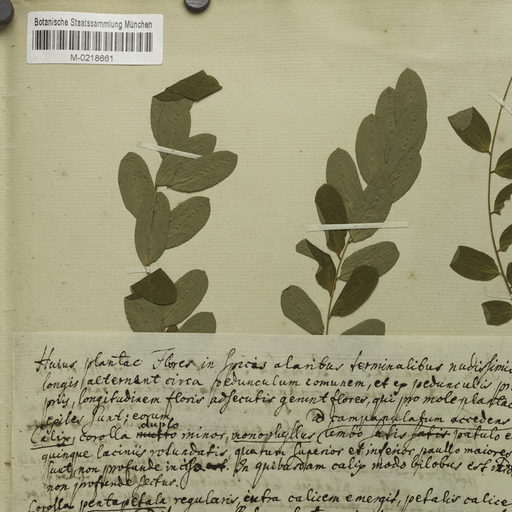 Botanische Staatssammlung München
M-0218661
Huius plantae Flores in spicas alaribus terminalibus nudissimis
longis, alternant circa pedunculum comunem, et ex pedunculis pro
prijs, longitudinem floris adsecutis gerunt flores, qui pro mole plantae
sunt, eorum
ad campanulatum accedens
duplo
Calix, corolla multo minor, monophyllus, limbo satis patulo
quinque lacinijs rotundatis, quarum superior et inferior paullo maiores
sunt, non profunde In quibusdam calix modo bilobus est
non profunde sectus.
Corolla pentapetala regularis, extra calicem emergis, petalis calice